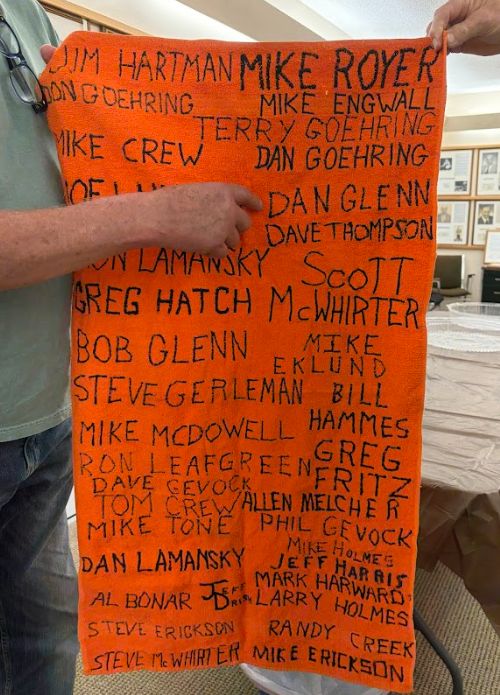 JIM HARTMAN MIKE ROYER
DON GOEHRING MIKE ENGWALL
TERRY GOEHRING
MIKE CREW DAN GOEHRING
DAN GLENN
DAVE THOMPSON
RON LAMANSKY
SCOTT
GREG HATCH McWHIRTER
BOB GLENN MIKE
EKLUND
STEVE GERLEMAN BILL
HAMMES
MIKE MCDOWELL
GREG
RON LEAFGREEN FRITZ
DAVE GEVOCK
TOM CREW ALLEN MELCHER
MIKE TONE PHIL GEVOCK
MIKE HOLMES
DAN LAMANSKY JEFF HARRIS
MARK HARWARD
AL BONAR JEFF LARRY HOLMES
STEVE ERICKSON RANDY CREEK
STEVE McWHIRTER MIKE ERICKSON